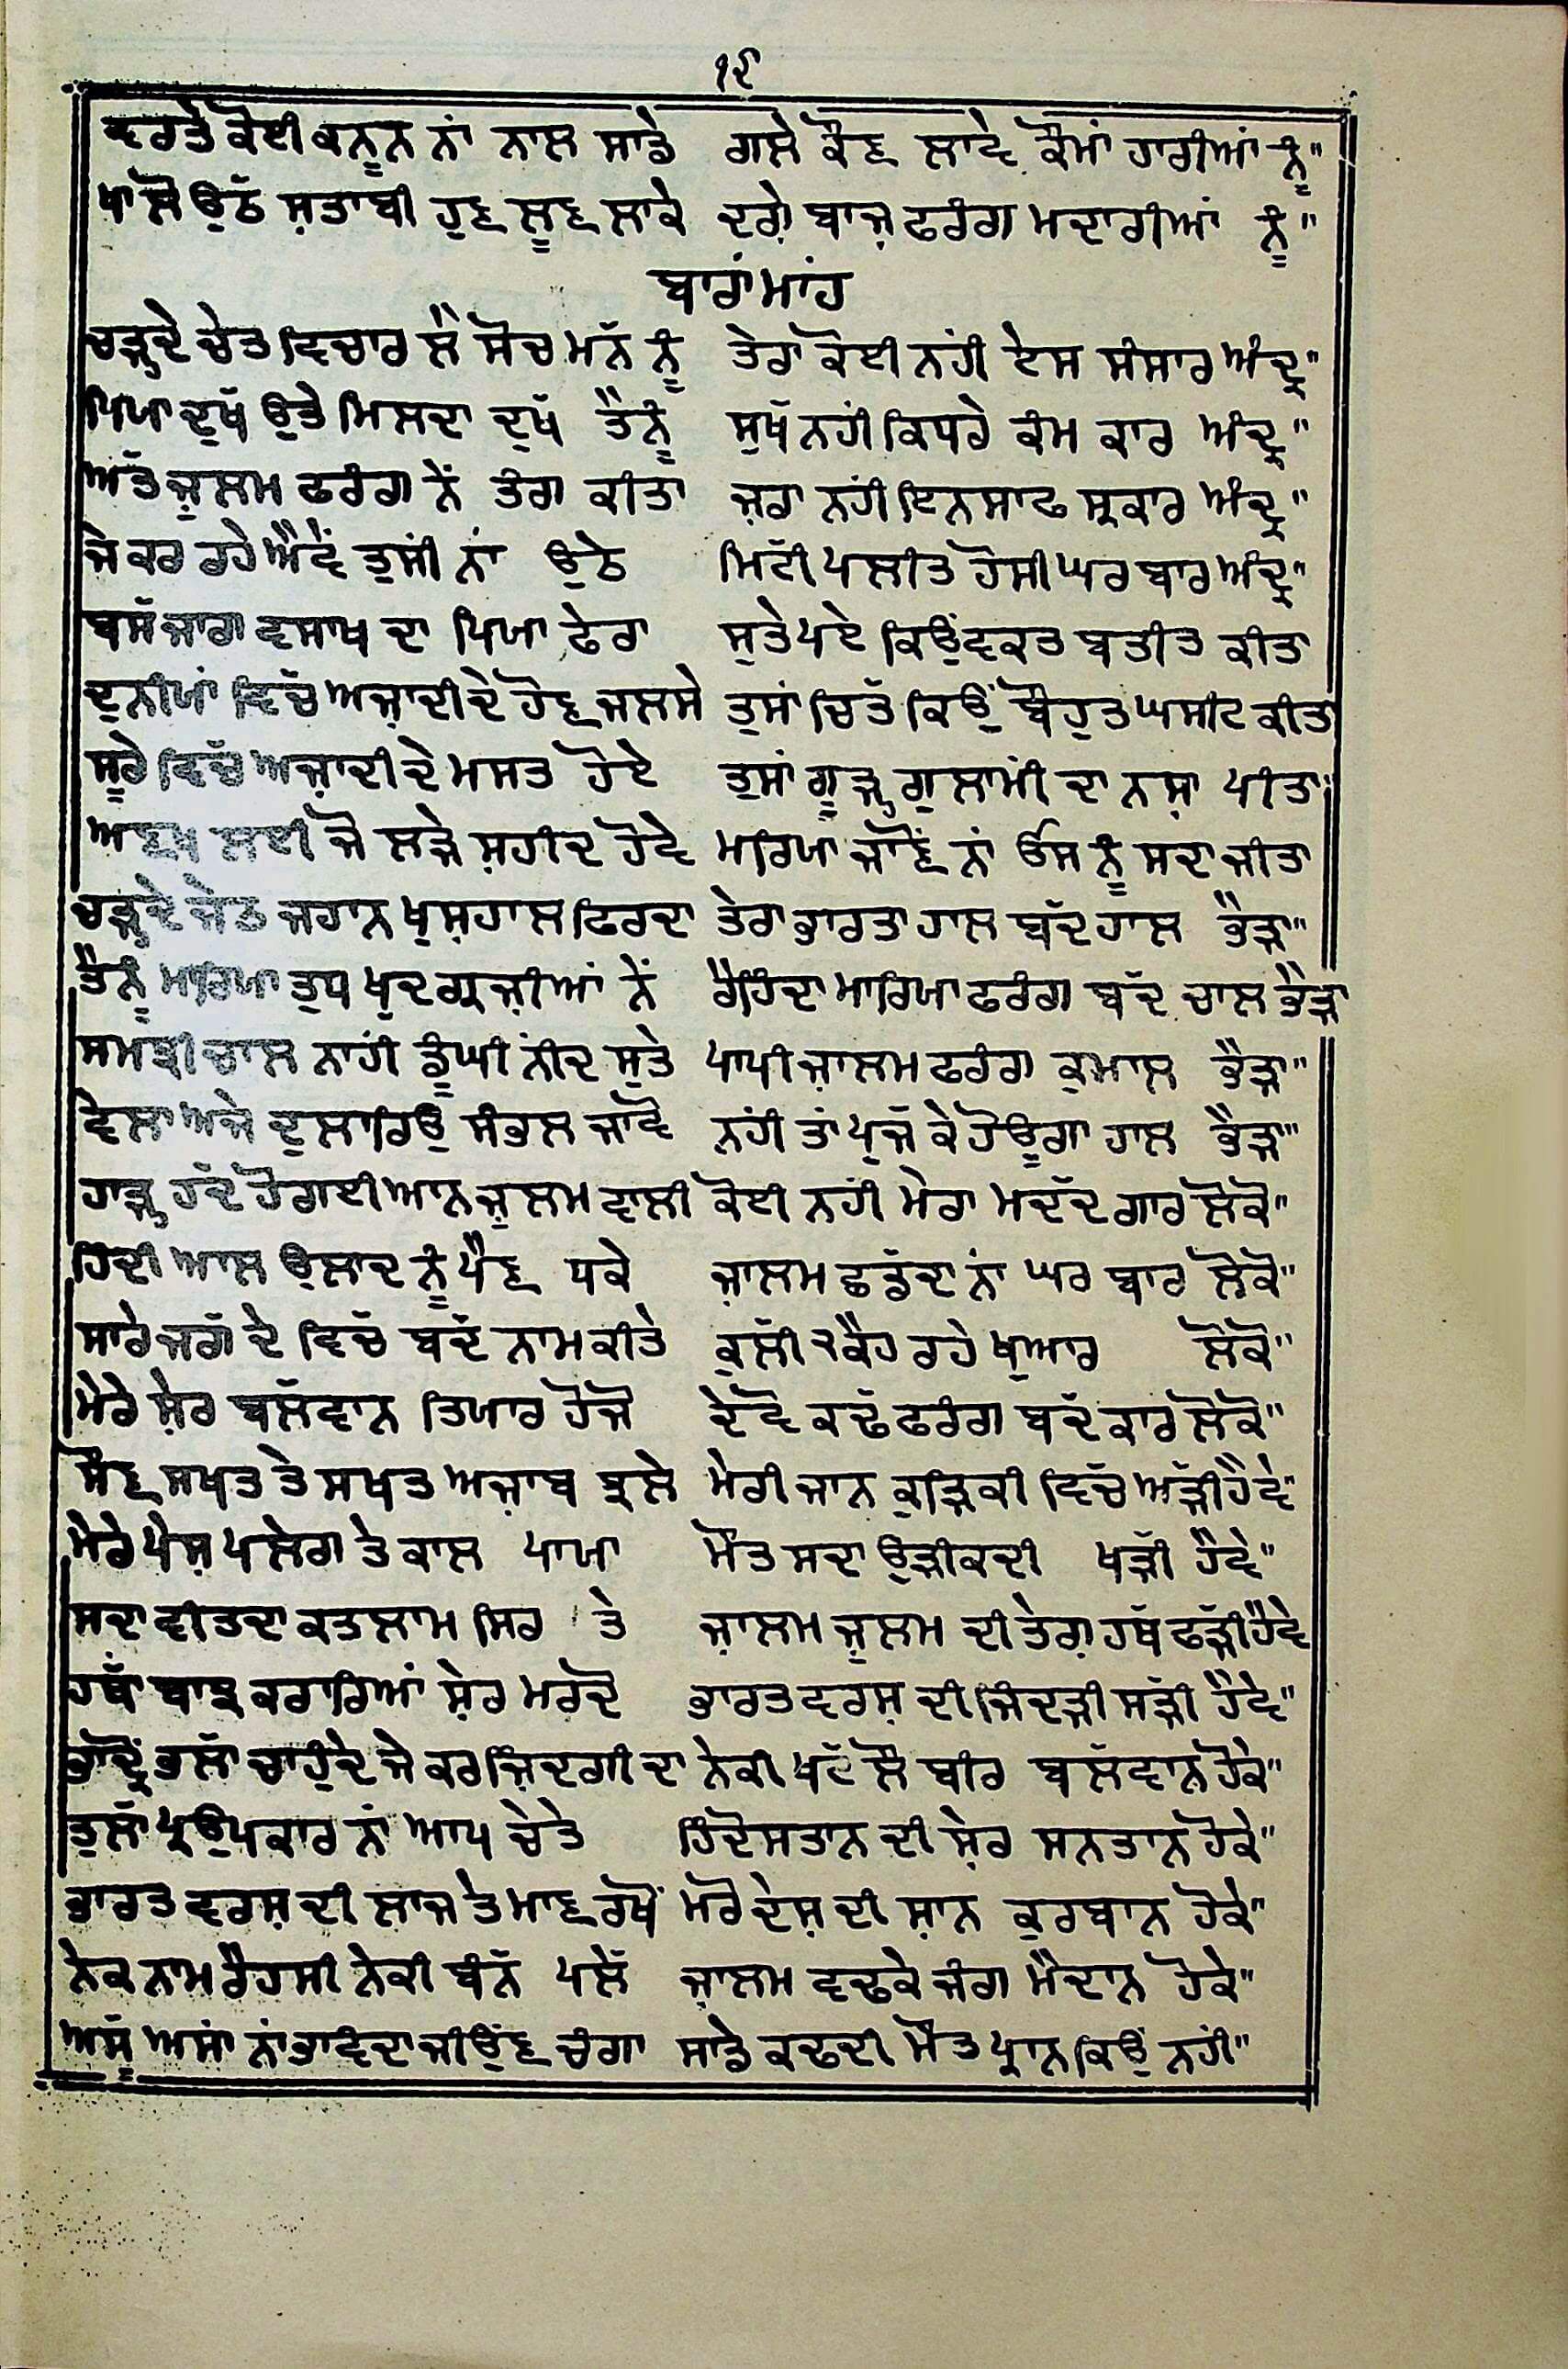 ੧੬
ਵਰਤੇ ਕੋਈ ਕਨੂਨ ਨਾਂ ਨਾਲ ਸਾਡੇ ਗਲੇ ਕੌਣ ਲਾਵੇ ਕੌਮਾਂ ਹਾਰੀਆਂ ਨੂੰ"
ਖਾਲੋ ਉਠੱ ਸ਼ਤਾਬੀ ਹੁਣ ਲੂਣ ਲਾਕੇ ਦਗ਼ੇ ਬਾਜ਼ ਫਰੰਗ ਮਦਾਰੀਆਂ ਨੂੰ"
ਬਾਰਾਂਮਾਂਹ
ਚੜ੍ਹਦੇ ਚੇਤ ਵਿਚਾਰ ਲੈ ਸੋਚ ਮਨੱ ਨੂੰ ਤੇਰਾ ਕੋਈ ਨਹੀਂ ਏਸ ਸੰਸਾਰ ਅੰਦ੍ਰ"
ਪਿਯਾ ਦੁਖੱ ਉਤੇ ਮਿਲਦਾ ਦੁਖੱ ਤੈਨੂੰ ਸੁਖੱ ਨਹੀਂ ਕਿਧਰੇ ਕੰਮ ਕਾਰ ਅੰਦ੍ਰ"
ਅਤੱ ਜ਼ੁਲਮ ਫਰੰਗ ਨੇਂ ਤੰਗ ਕੀਤਾ ਜ਼ਰਾ ਨਹੀਂ ਇਨਸਾਫ ਸ੍ਰਕਾਰ ਅੰਦ੍ਰ"
ਜੇ ਕਰ ਰਹੇ ਐਵੇਂ ਤੁਸੀਂ ਨਾਂ ਉਠੇ ਮਿਟੱੀ ਪਲੀਤ ਹੋਸੀ ਘਰ ਬਾਰ ਅੰਦ੍ਰ"
ਬਸੱ ਜਾਗ ਵਸਾਖ ਦਾ ਪਿਯਾ ਫੇਰਾ ਸੁਤੇ ਪਏ ਕਿਉਂ ਵਕਤ ਬਤੀਤ ਕੀਤਾ
ਦੁਨੀਯਾਂ ਵਿਚੱ ਅਜ਼ਾਦੀ ਦੇ ਹੋਣ ਜਲਸੇ ਤੁਸਾਂ ਚਿਤੱ ਕਿਉਂ ਬੌਹੁਤ ਘਸੀਟ ਕੀਤਾ
ਸੂਰੇ ਵਿਚੱ ਅਜ਼ਾਦੀ ਦੇ ਮਸਤ ਹੋਏ ਤੁਸਾਂ ਗੂੜ੍ਹ ਗੁਲਾਮੀਂ ਦਾ ਨਸ਼ਾ ਪੀਤਾ
ਅਣਖ ਲਈ ਜੋ ਲੜੇ ਸ਼ਹੀਦ ਹੋਵੇ ਮਰਿਯਾ ਜਾਂਣ ਨਾਂ ਓਸ ਨੂੰ ਸਦਾ ਜੀਤਾ
ਚੜ੍ਹਦੇ ਜੇਠ ਜਹਾਨ ਖੁਸ਼ਹਾਲ ਫਿਰਦਾ ਤੇਰਾ ਭਾਰਤਾ ਹਾਲ ਬੱਦ ਹਾਲ ਭੈੜਾ"
ਤੈਨੂੰ ਮਾਰਿਯਾ ਤੁਧ ਖੁਦ ਗ੍ਰਜ਼ੀਆਂ ਨੇਂ ਰੈਹਿੰਦਾ ਮਾਰਿਯਾ ਫਰੰਗ ਬੱਦ ਚਾਲ ਭੈੜਾ
ਸਮਝੀ ਚਾਲ ਨਾਹੀਂ ਡੂੰਘੀ ਨੀਂਦ ਸੁਤੇ ਪਾਪੀ ਜ਼ਾਲਮ ਫਰੰਗ ਕੁਮਾਲ ਭੈੜਾ"
ਵੇਲਾ ਅਜੇ ਦੁਲਾਰਿਉ ਸੰਭਲ ਜਾਵੋ ਨਹੀਂ ਤਾਂ ਪੁਜੱ ਕੇ ਹੋਊਗਾ ਹਾਲ ਭੈੜਾ"
ਹਾੜ੍ਹ ਹੱਦ ਹੋ ਗਈ ਆਨ ਜ਼ੁਲਮ ਵਾਲੀ ਕੋਈ ਨਹੀਂ ਮੇਰਾ ਮਦੱਦ ਗਾਰ ਲੋਕੋ"
ਹਿੰਦੀ ਆਲ ਉਲਾਦ ਨੂੰ ਪੈਣ ਧਕੇ ਜ਼ਾਲਮ ਛਡੱਦਾ ਨਾਂ ਘਰ ਬਾਰ ਲੋਕੋ"
ਸਾਰੇ ਜਗੱ ਦੇ ਵਿਚੱ ਬਦੱ ਨਾਮ ਕੀਤੇ ਕੁਲੱੀ ੨ ਕੈਹ ਰਹੇ ਖੁਆਰ ਲੋਕੋ"
ਮੇਰੇ ਸ਼ੇਰ ਬਲੱਵਾਨ ਤਿਯਾਰ ਹੋਜੋ ਦੇਵੋ ਕਢੱ ਫਰੰਗ ਬਦੱ ਕਾਰ ਲੋਕੋ"
ਸੌਣ ਸਖਤ ਤੇ ਸਖਤ ਅਜ਼ਾਬ ਝੁਲੇ ਮੇਰੀ ਜਾਨ ਕੁੜਿਕੀ ਵਿਚੱ ਅੜੱੀ ਹੈਵੇ"
ਮੇਰੇ ਪੇਸ਼ ਪਲੇਗ ਤੇ ਕਾਲ ਪਾਯਾ ਮੌਤ ਸਦਾ ਉਡੀਕਦੀ ਖੜੱੀ ਹੈਵੇ"
ਸਦਾ ਵੀਤਦਾ ਕਤਲਾਮ ਸਿਰ ਤੇ ਜ਼ਾਲਮ ਜ਼ੁਲਮ ਦੀ ਤੇਗ਼ ਹਥੱ ਫੜੱੀ ਹੈਵੇ
ਹਥਾਂ ਬਾਝ ਕਰਾਰਿਆਂ ਸ਼ੇਰ ਮਰਦੋ ਭਾਰਤ ਵਰਸ਼ ਦੀ ਜਿੰਦੜੀ ਸੜੱੀ ਹੈਵੇ"
ਭਾਦ੍ਰੋਂ ਭਲਾੱ ਚਾਹੁੰਦੇ ਜੇ ਕਰ ਜ਼ਿੰਦਗੀ ਦਾ ਨੇਕੀ ਖਟੱ ਲੌ ਬੀਰ ਬਲੱਵਾਨ ਹੋਕੇ"
ਤੁਲਾੱ ਪ੍ਰਉਪਕਾਰ ਨਾਂ ਆਪ ਚੇਤੇ ਹਿੰਦੋਸਤਾਨ ਦੀ ਸ਼ੇਰ ਸਨਤਾਨ ਹੋਕੇ"
ਭਾਰਤ ਵਰਸ਼ ਦੀ ਲਾਜ ਤੇ ਮਾਣ ਰਖੋਂ ਮਰੋ ਦੇਸ਼ ਦੀ ਸ਼ਾਨ ਕੁਰਬਾਨ ਹੋਕੇ"
ਨੇਕ ਨਾਮ ਰੈਹਸੀ ਨੇਕੀ ਬੰਨੱ ਪਲੇੱ ਜ਼ਾਲਮ ਵਢਕੇ ਜੰਗ ਮੈਦਾਨ ਹੋਕੇ"
ਅਸੂੱ ਅਸਾਂ ਨਾਂ ਭਾਵਿੰਦਾ ਜੀਉਂਣ ਚੰਗਾ ਸਾਡੇ ਕਢਦੀ ਮੌਤ ਪ੍ਰਾਨ ਕਿਉਂ ਨਹੀਂ"